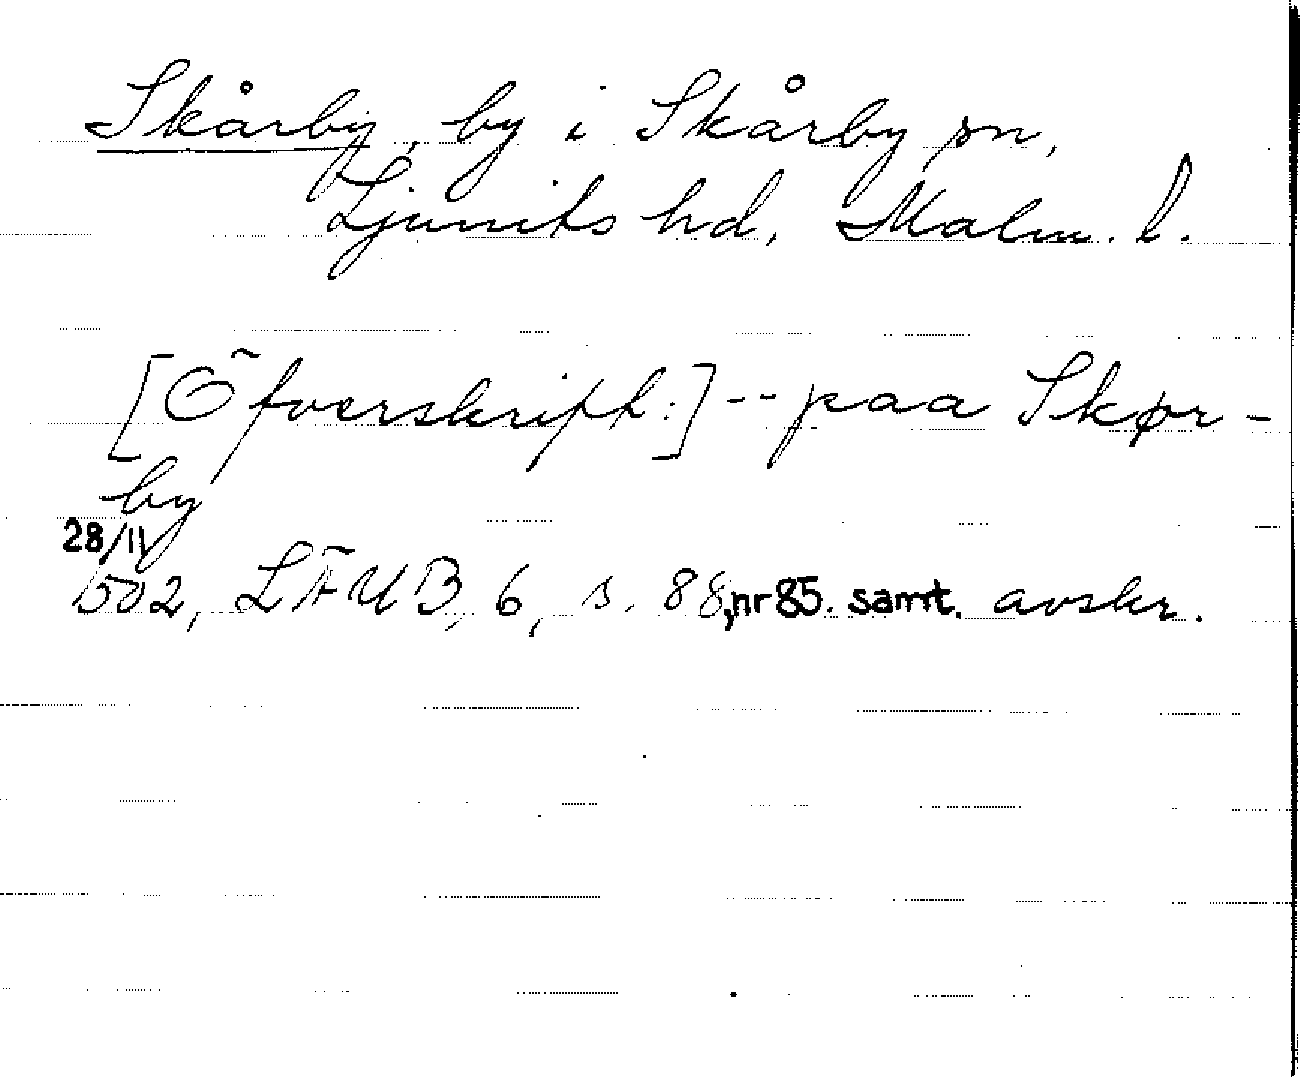 Skårby, by i Skårby sn,
Ljunits hd, Malm. l.
[Öfverskrift:] -- paa Skør-
by
28/11
1502, LÄUB, 6, s. 88, nr 85. samt. avskr.